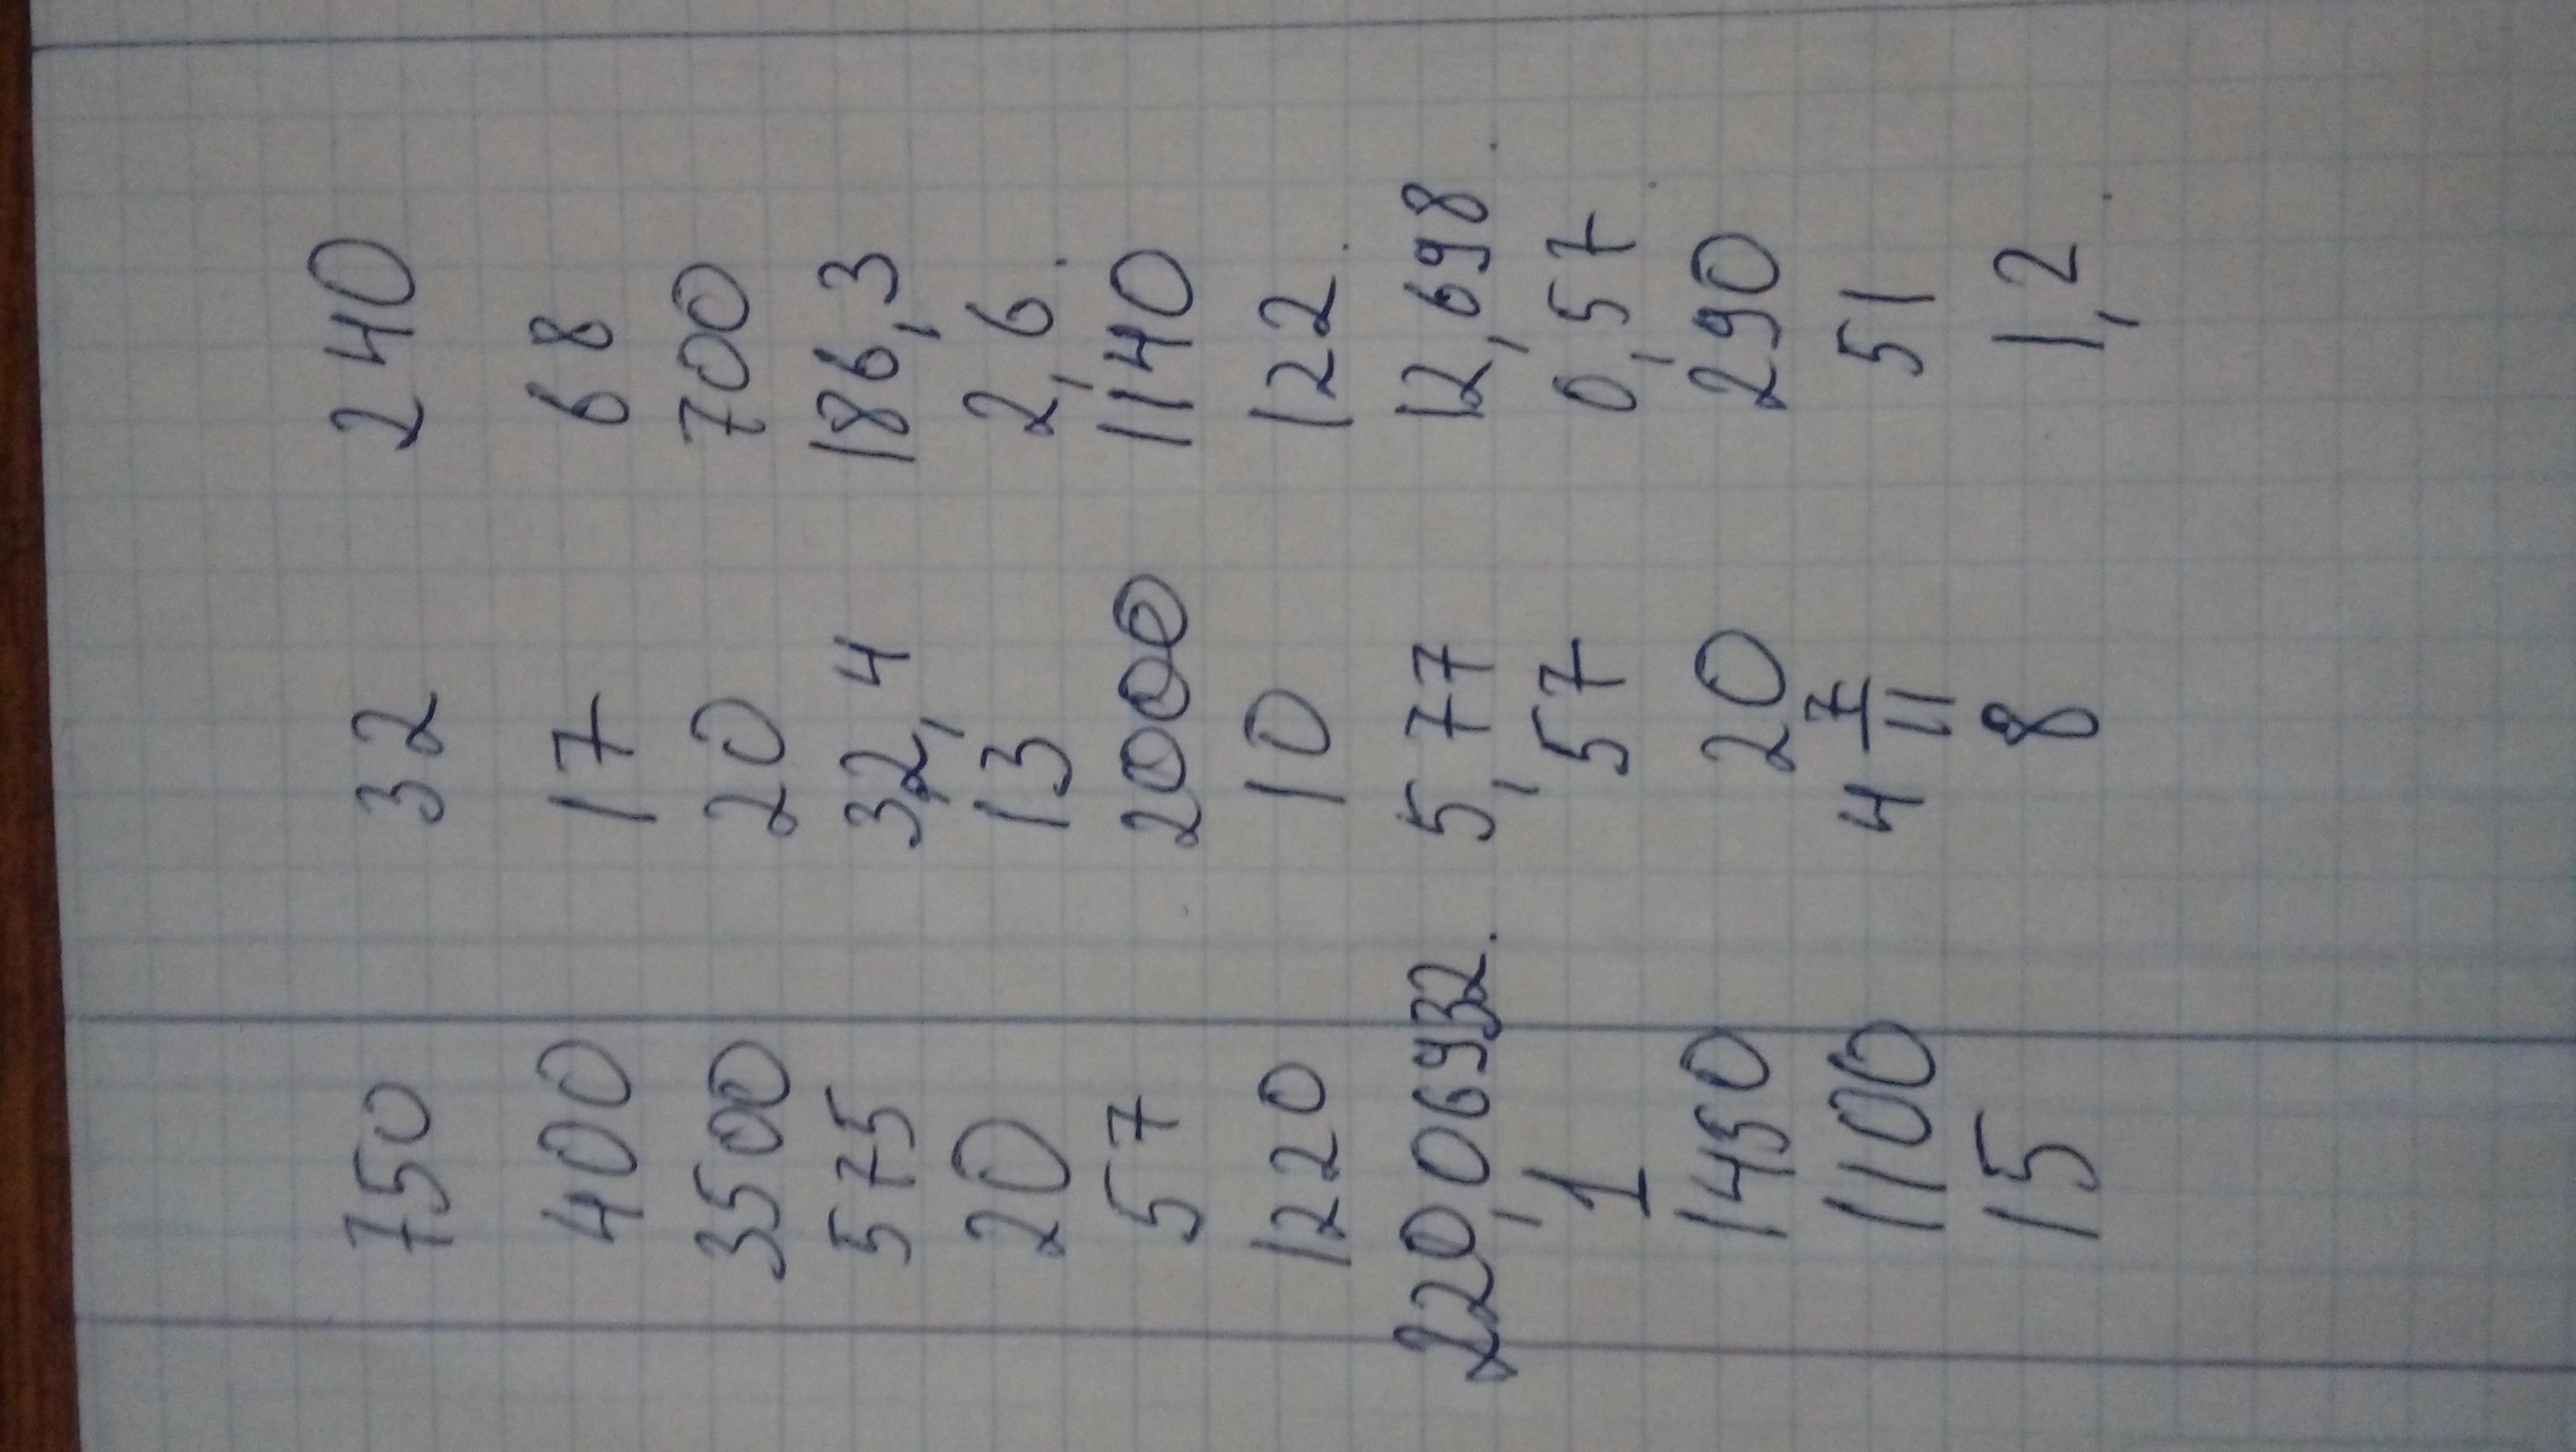 750 32 240
400 17 68
3500 20 700
575 32,4 186,3
20 13 2,6
57 2000 1140
1220 10 122
220,06932 5,77 12,698
1 57 0,57
1450 20 290
1100 4 7/11 51
15 8 1,2